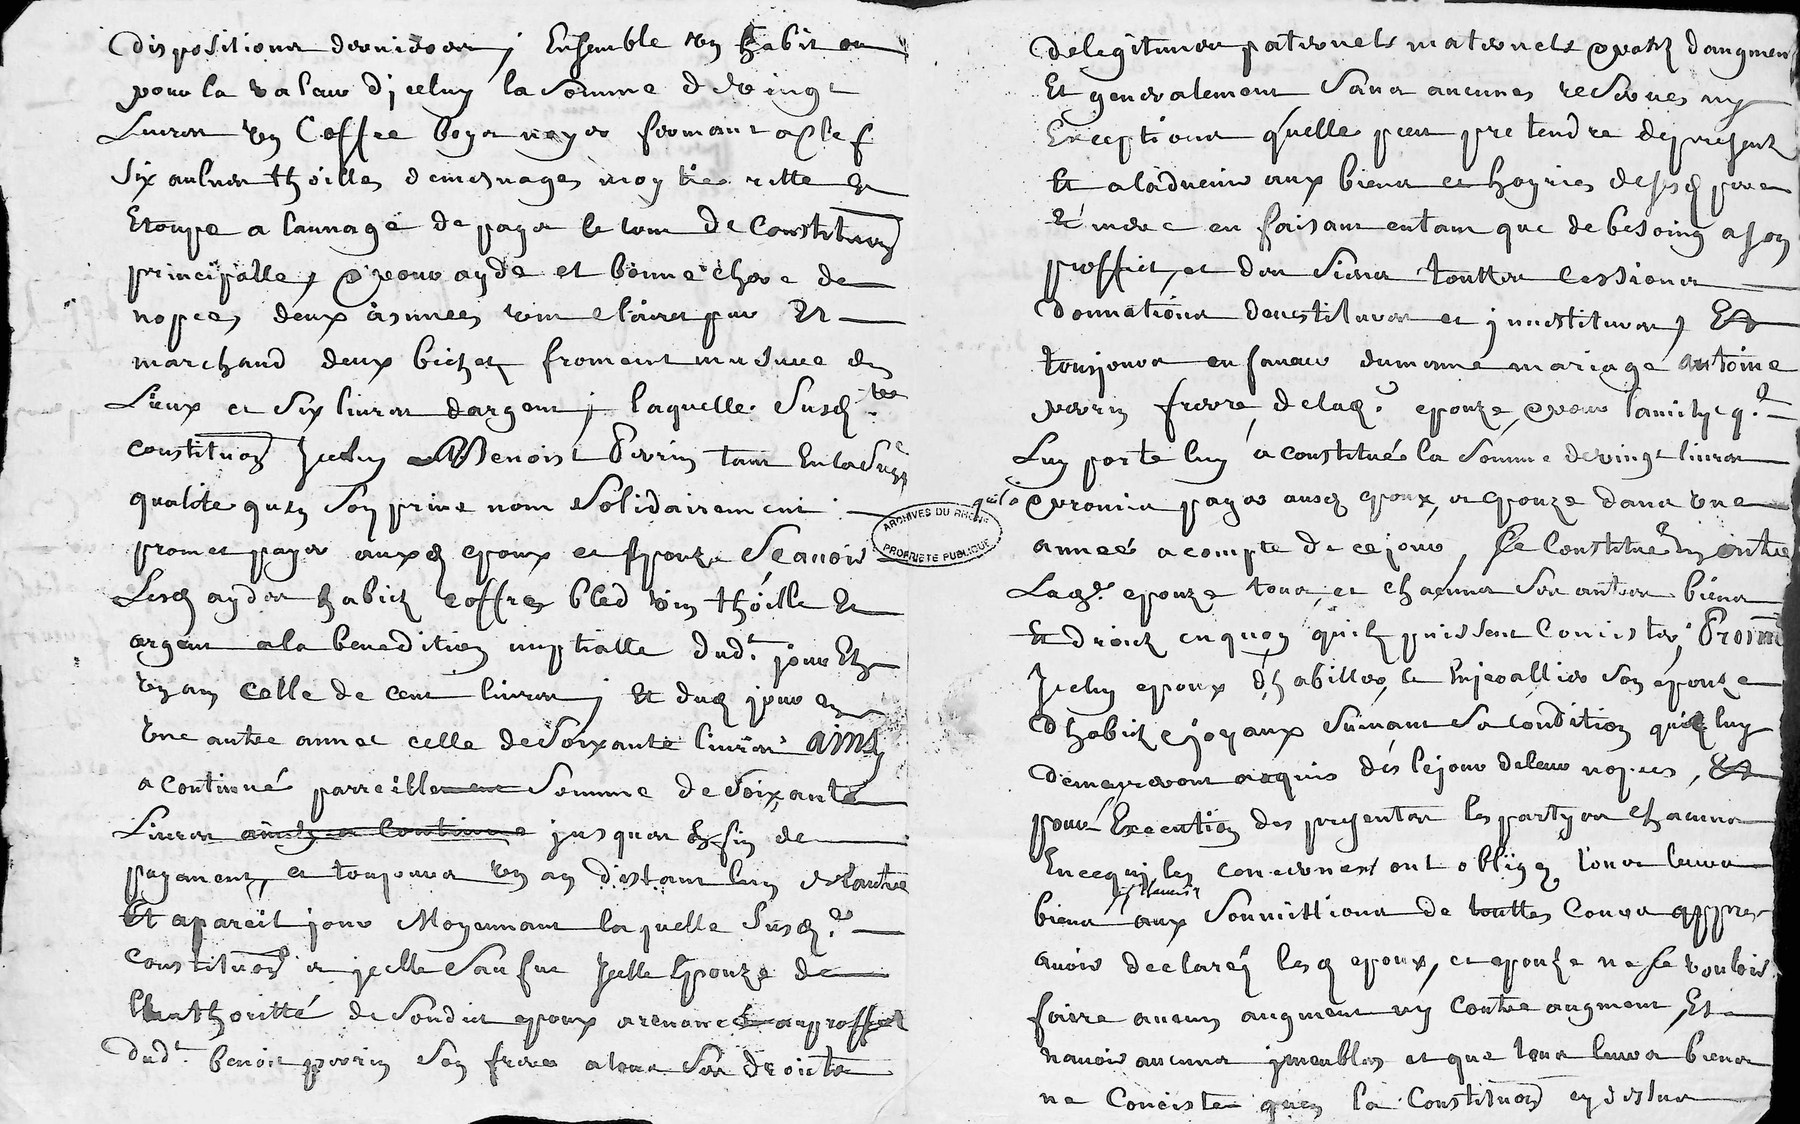 dispositions dernieres, Ensemble un habit ou
pour la valeur d'iceluy la somme de vingt
Livres un Coffre boys noyer fermant a clef
six aulnes thoilles de mesnages moytie ritte et
Etoupe a launage de pays le tout de Constituon
principalle, & pour ayde et bonne chere de
nopces deux asnnees vin clairet pur Et
marchand deux bichetz froment mesure des
Lieux et six livres dargent, laquelle susd.te
constituon Iceluy Benoist Perrin tant En lad.e
qualité quen son prive nom solidairement
promet payer auxd epoux et Epouze Scavoir
Lesd aydes habitz coffres bled vin thoille Et
argent a la benedition nuptialle dud.t jour En
un an celle de cent livres, Et dud jour en
Une autre annee celle de Soixante livres ainsy
a continué parreille somme de Soixante
Livres ainsy a continue jusques a fin de
payement, et toujours un an distant lun de lautre
Et a pareil jour Moyennant laquelle Susd.e
Constituon a icelle sauf que Icelle Epouze de
lauthoritté de Sondict epoux a renoncé au proffict
dud.t benoist perrin son frere a tous Ses droicts
de legitimes paternels maternels partz daugmen
Et generalement Sans aucunes reserves ny
Exceptions quelle peut pretendre de present
Et a ladvenir aux biens et hoyries desd pere
et mere en faisant entant que de besoing a son
proffict, et des siens touttes cessions
donnations devestitures et investitures, Et
tousjours en faveur du mesme mariage antoine
perrin frere de lad.e epouze, pour lamitye q.l
Luy porte luy a constitué la somme de vingt livres
quil a promis payer ausd epoux, et epouze dans une
année a compte de ce jour, Se Constitue en outre
Lad.e epouze tous, et chacuns ses autres biens
Et droictz en quoy quilz puissent Concister, Promet
Iceluy epoux d'habiller, et Enjoallier son épouze
dhabitz & joyaux suivant sa condition quil luy
demeureront acquis dés le jour de leur nopces, Et
pour Execution des presentes les partyes chacune
En ce qui les concernes ont obligez tous leurs
biens aux Soumittions de touttes Cours appres
avoir declarez lesd epoux, et epouze ne se vouloir
faire aucun augment ny contre augment, Et
navoir aucuns imeubles et que tous leurs biens
ne Conciste quen la Constituon cy dessus
ARCHIVES DU RHONE
PROPRIETE PUBLIQUE